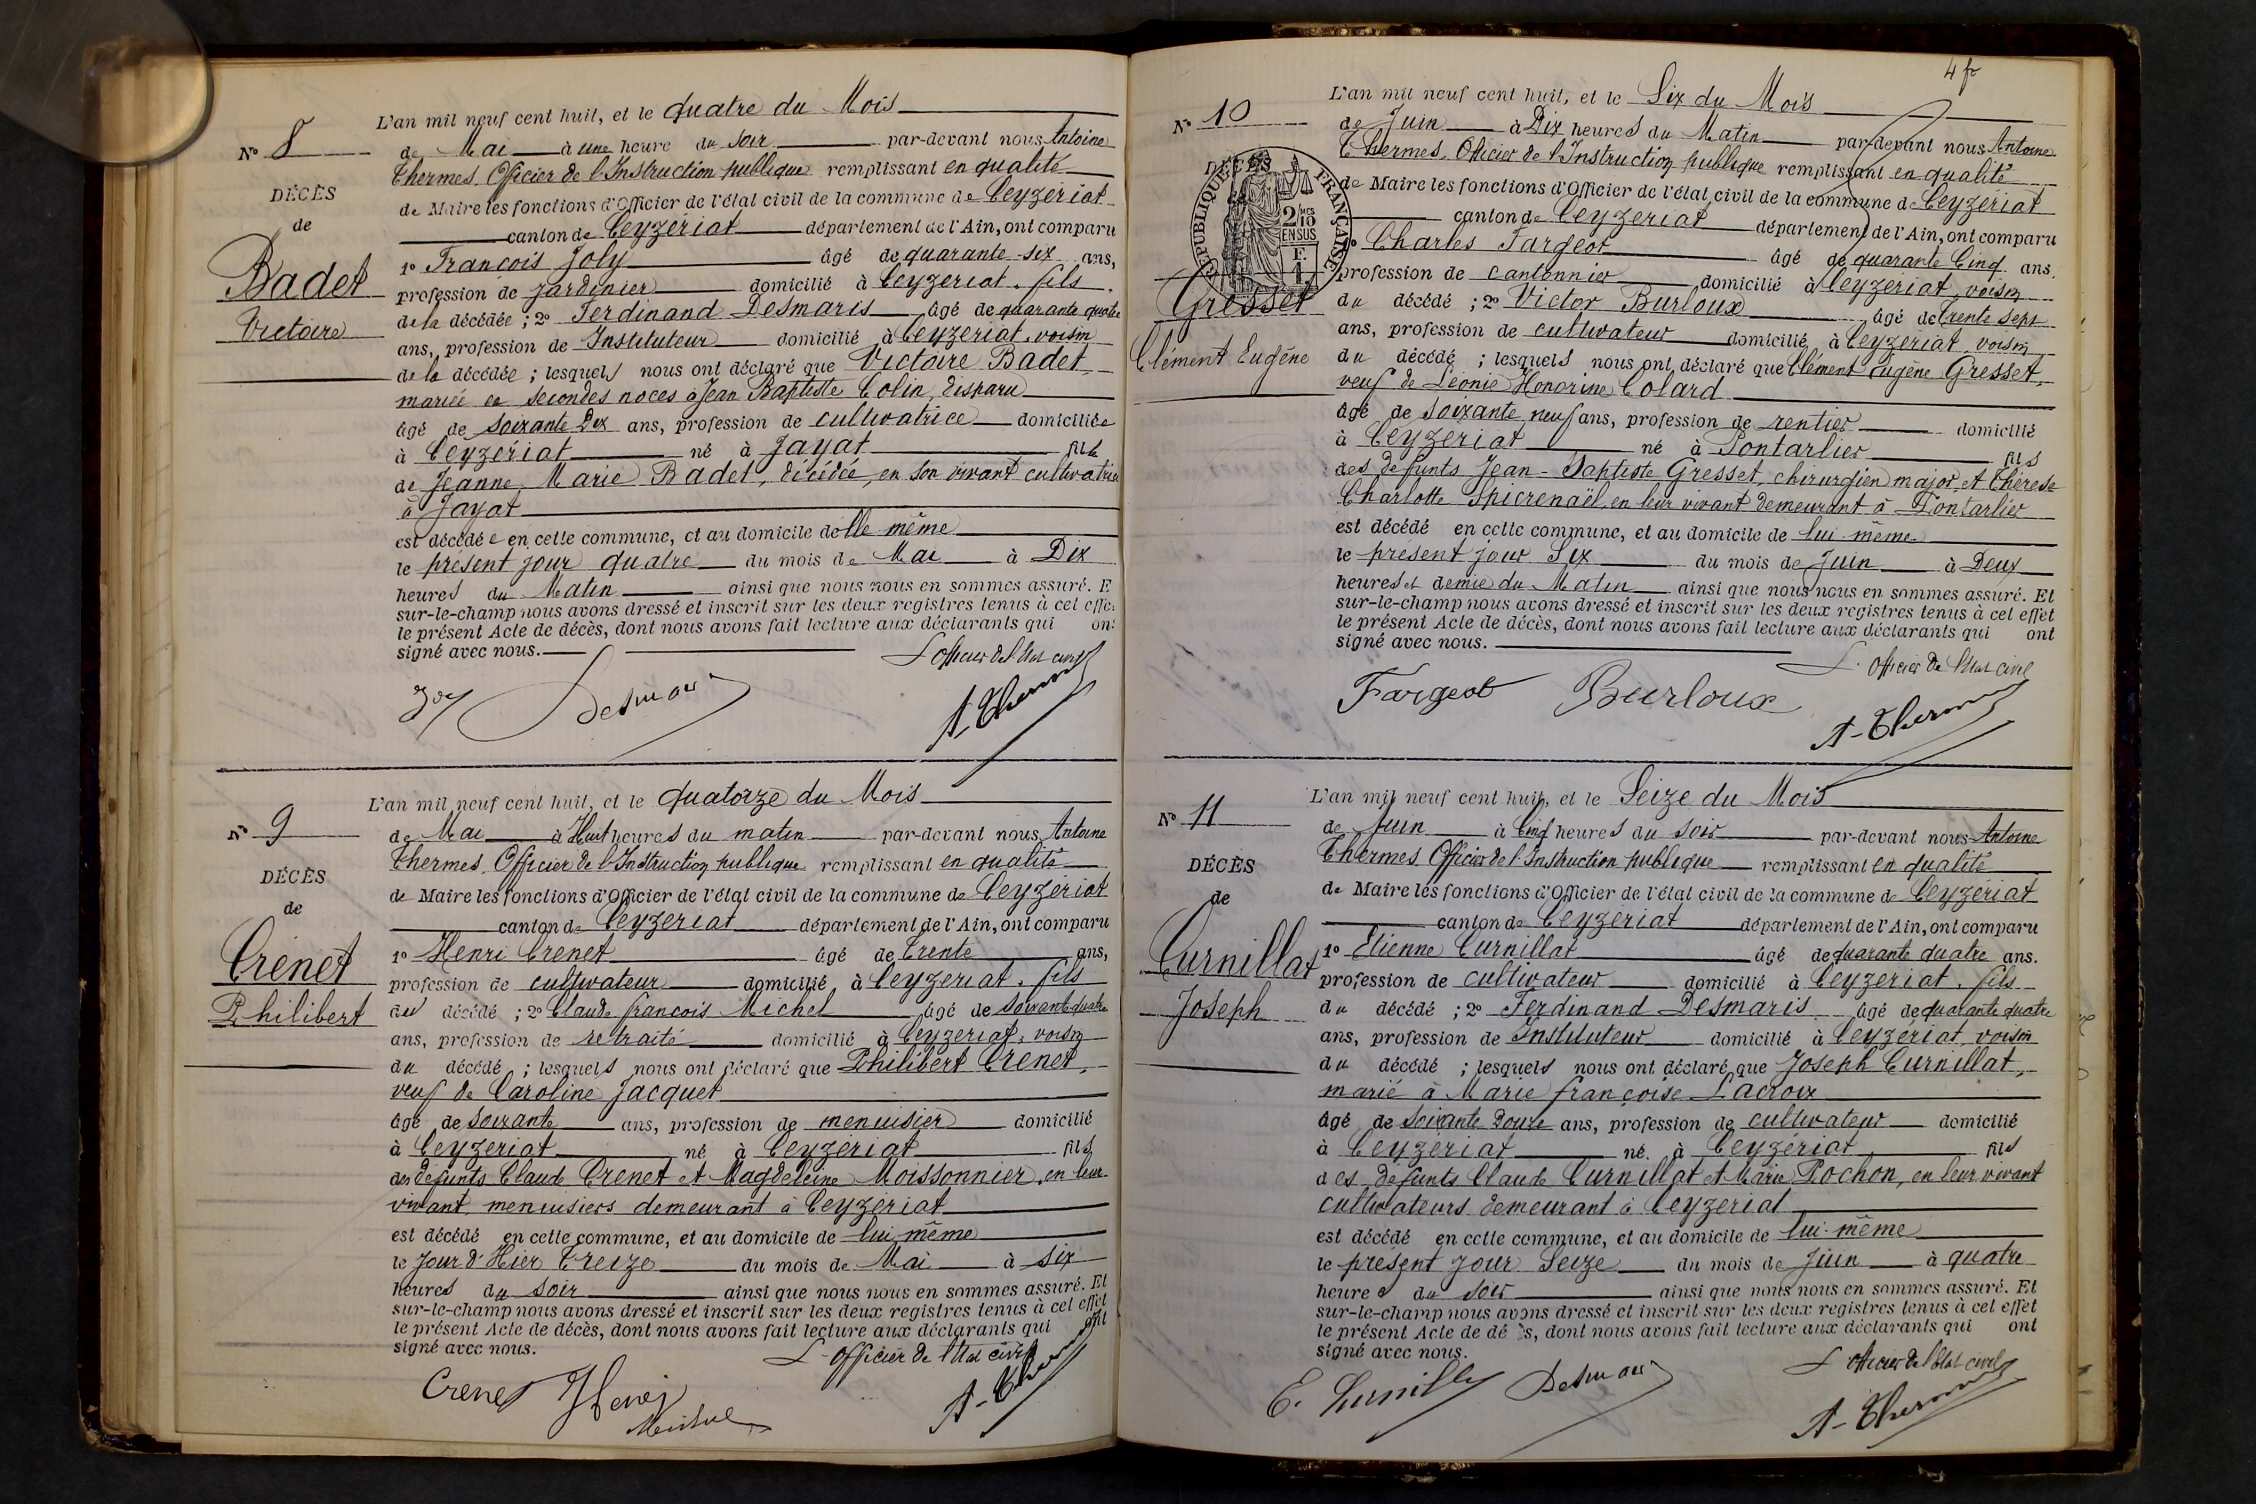 L'an mil neuf cent huit, et le quatre du Mois
N° 8
de Mai à une heure du soir par-devant nous Antoine
Thermes, Officier de l'Instruction publique remplissant en qualité
DÉCÈS
de Maire les fonctions d'Officier de l'état civil de la commune de Ceyzériat
de
canton de Ceyzériat département de l'Ain, ont comparu
1° François Joly âgé de quarante-six ans,
Badet
profession de jardinier domicilié à Ceyzériat, fils
Victoire
de la décédée ; 2° Ferdinand Desmaris âgé de quarante quatre
ans, profession de Instituteur domicilié à Ceyzériat, voisin
de la décédée ; lesquels nous ont déclaré que Victoire Badet,
mariée en secondes noces à Jean Baptiste Colin, disparu
âgé de soixante Dix ans, profession de cultivatrice domiciliée
à Ceyzériat né à Jayat fille
de Jeanne Marie Badet, décédée, en son vivant cultivatrice
à Jayat
est décédée en cette commune, et au domicile delle même
le présent jour quatre du mois de Mai à Dix
heures du Matin ainsi que nous nous en sommes assuré. E
sur-le-champ nous avons dressé et inscrit sur les deux registres tenus à cet effe
le présent Acte de décès, dont nous avons fait lecture aux déclarants qui ont
signé avec nous.
L'officier de l'état civil
Joly Desmaris A. Thermes
L'an mil neuf cent huit, et le quatorze du Mois
N° 9
de Mai à Huit heures du matin par-devant nous Antoine
Thermes, Officier de l'Instruction publique remplissant en qualité
DÉCÈS
de Maire les fonctions d'Officier de l'état civil de la commune de Ceyzériat
de
canton de Ceyzériat département de l'Ain, ont comparu
Crenet
1° Henri Crenet âgé de Trente ans,
profession de cultivateur domicilié à Ceyzériat, fils
Philibert
du décédé ; 2° Claude françois Michel âgé de soixante quatre
ans, profession de retraité domicilié à Ceyzériat, voisin
du décédé ; lesquels nous ont déclaré que Philibert Crenet,
veuf de Caroline Jacquet
âgé de soixante ans, profession de menuisier domicilié
à Ceyzériat né à Ceyzériat fils
des défunts Claude Crenet et Magdeleine Moissonnier, en leur
vivant menuisiers demeurant à Ceyzériat
est décédé en cette commune, et au domicile de lui-même
le Jour d'Hier Treize du mois de Mai à six
heures du soir ainsi que nous nous en sommes assuré. Et
sur-le-champ nous avons dressé et inscrit sur les deux registres tenus à cet effet
le présent Acte de décès, dont nous avons fait lecture aux déclarants qui ont
signé avec nous.
L'officier de l'état civil
Crenet Henri
Michel
A. Thermes
4 f
L'an mil neuf cent huit, et le Six du Mois
N° 10
de Juin à Dix heures du Matin par-devant nous Antoine
Thermes, Officier de l'Instruction publique remplissant en qualité
DÉCÈS
RÉPUBLIQUE FRANÇAISE
2/10 EN SUS
F. 1
de Maire les fonctions d'Officier de l'état civil de la commune de Ceyzériat
canton de Ceyzériat département de l'Ain, ont comparu
1° Charles Fargeot âgé de quarante Cinq ans.
profession de cantonnier domicilié à Ceyzériat, voisin
Gresset
du décédé ; 2° Victor Burloux âgé de Trente sept
ans, profession de cultivateur domicilié à Ceyzériat, voisin
Clément Eugène
du décédé ; lesquels nous ont déclaré que Clément Eugène Gresset,
veuf de Léonie Honorine Colard
âgé de soixante neuf ans, profession de rentier domicilié
à Ceyzériat né à Pontarlier fils
des défunts Jean-Baptiste Gresset, chirurgien major, et Thérèse
Charlotte Spicrenaël, en leur vivant demeurant à Pontarlier
est décédé en cette commune, et au domicile de lui-même
le présent jour Six du mois de Juin à Deux
heures et demie du Matin ainsi que nous nous en sommes assuré. Et
sur-le-champ nous avons dressé et inscrit sur les deux registres tenus à cet effet
le présent Acte de décès, dont nous avons fait lecture aux déclarants qui ont
signé avec nous.
L'officier de l'état civil
Fargeot Burloux A. Thermes
L'an mil neuf cent huit, et le Seize du Mois
N° 11
de Juin à Cinq heures du soir par-devant nous Antoine
Thermes Officier de l'Instruction publique remplissant en qualité
DÉCÈS
de Maire les fonctions d'Officier de l'état civil de la commune de Ceyzériat
de
canton de Ceyzériat département de l'Ain, ont comparu
Curnillat
1° Etienne Curnillat âgé de quarante quatre ans.
profession de cultivateur domicilié à Ceyzériat, fils
Joseph
du décédé ; 2° Ferdinand Desmaris âgé de quarante quatre
ans, profession de Instituteur domicilié à Ceyzériat, voisin
du décédé ; lesquels nous ont déclaré que Joseph Curnillat,
marié à Marie françoise Lacroix
âgé de soixante Douze ans, profession de cultivateur domicilié
à Ceyzériat né à Ceyzériat fils
des défunts Claude Curnillat et Marie Rochon, en leur vivant
cultivateurs demeurant à Ceyzériat
est décédé en cette commune, et au domicile de lui-même
le présent jour Seize du mois de Juin à quatre
heures du soir ainsi que nous nous en sommes assuré. Et
sur-le-champ nous avons dressé et inscrit sur les deux registres tenus à cet effet
le présent Acte de dé s, dont nous avons fait lecture aux déclarants qui ont
signé avec nous.
L'officier de l'état civil
E. Curnillat Desmaris A. Thermes